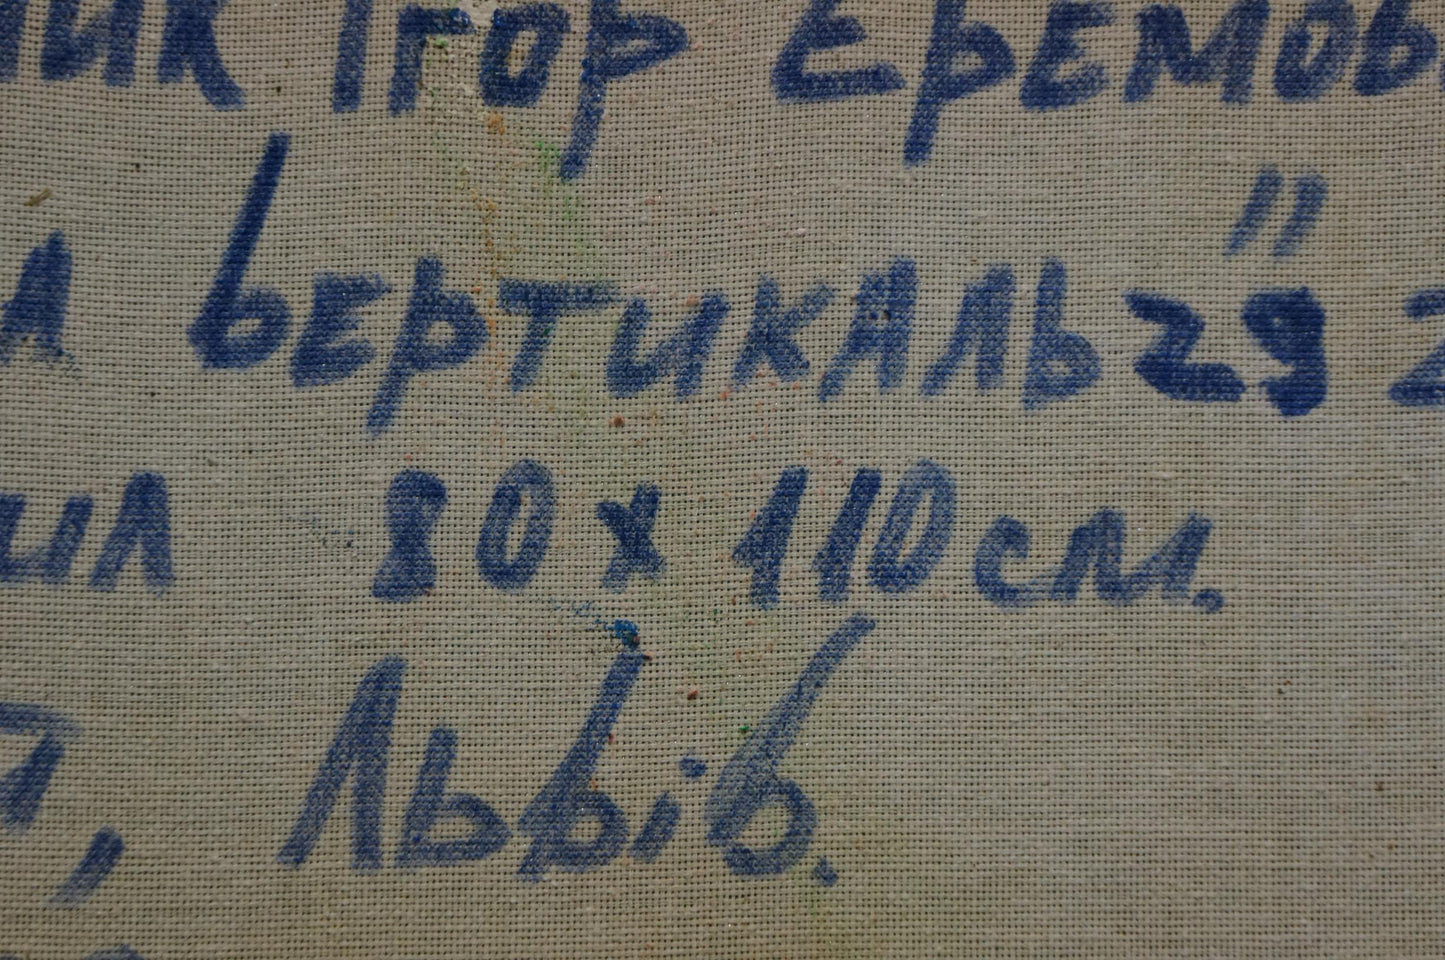 ник Ігор Єремов
л вертикаль29" 2
ил 80 х 110 см.
Львів.